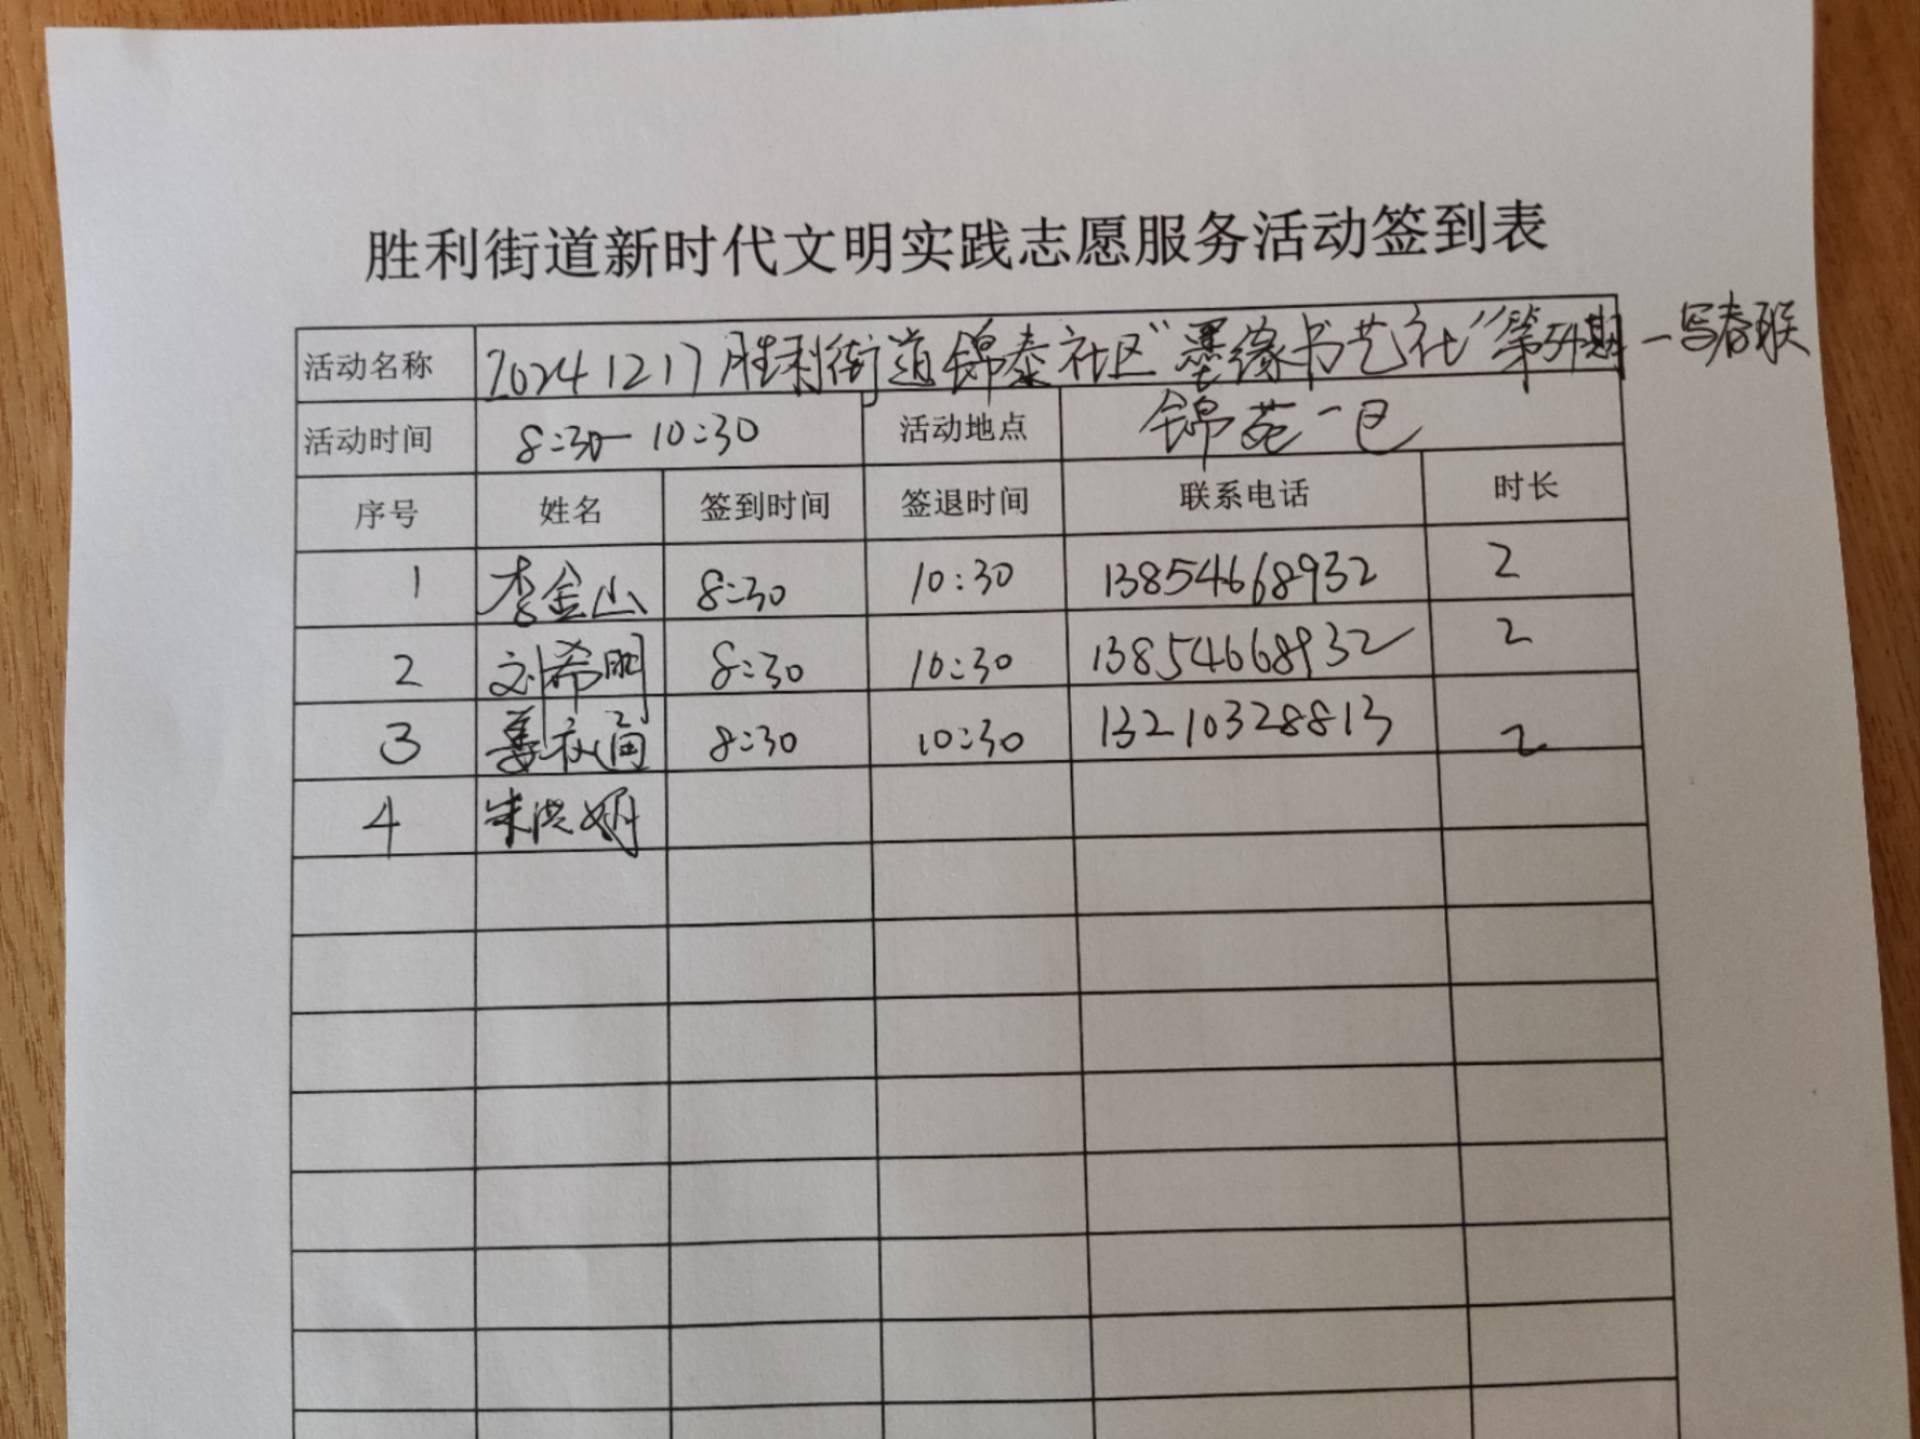 胜利街道新时代文明实践志愿服务活动签到表
活动名称 20241217胜利街道锦泰社区“墨缘书艺社”第54期-写春联
活动时间 8:30-10:30 活动地点 锦苑一
序号 姓名 签到时间 签退时间 联系电话 时长
1 李金山 8:30 10:30 13854668932 2
2 刘希明 8:30 10:30 13854668932 2
3 姜 8:30 10:30 13210328813 2
4 朱洪娟